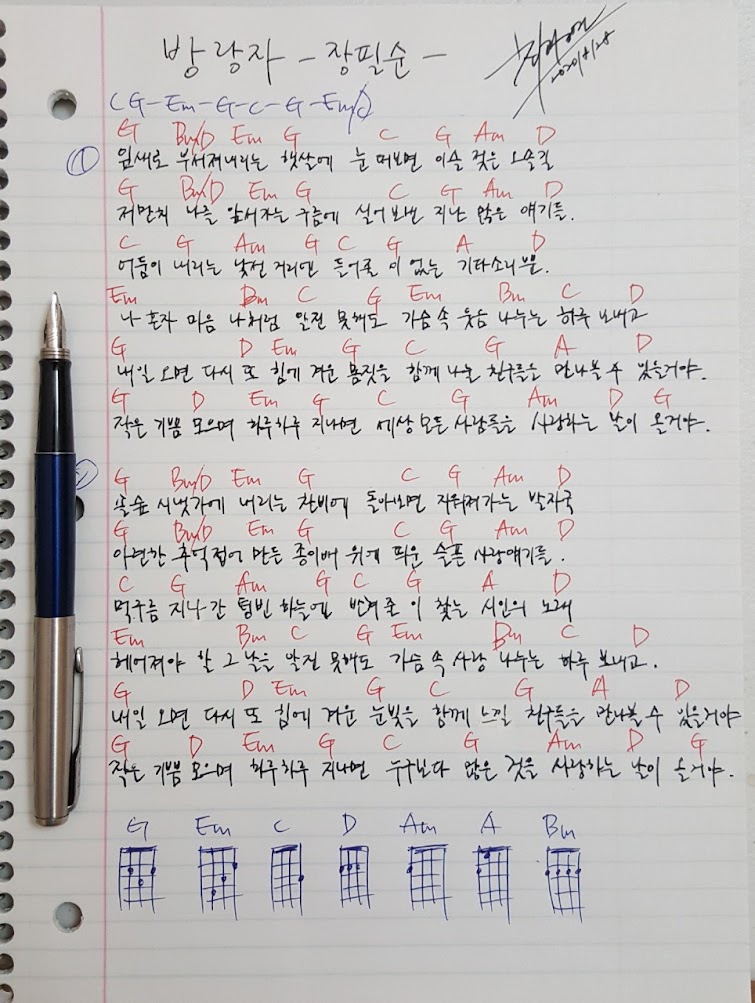 방랑자 - 장필순 -
2020/8/28
C G - Em - G - C - G - Em/D
G Bm/D Em G C G Am D
① 잎새로 부서져내리는 햇살에 눈 떠보면 이슬 젖은 오솔길
G Bm/D Em G C G Am D
저만치 나를 앞서가는 구름에 실어 보낸 지난 많은 얘기들.
C G Am G C G A D
어둠이 내리는 낯선 거리엔 들어줄 이 없는 기타소리뿐.
Em Bm C G Em Bm C D
나 혼자 마음 나처럼 알진 못해도 가슴 속 웃음 나누는 하루 보내고
G D Em G C G A D
내일 오면 다시 또 힘에 겨운 몸짓을 함께 나눌 친구들을 만나볼 수 있을거야.
G D Em G C G Am D G
작은 기쁨 모으며 하루하루 지나면 세상 모든 사람들을 사랑하는 날이 올거야.
② G Bm/D Em G C G Am D
솔숲 시냇가에 내리는 찬비에 돌아보면 지워져가는 발자국
G Bm/D Em G C G Am D
아련한 추억 접어 만든 종이배 위에 띄운 슬픈 사랑얘기들.
C G Am G C G A D
먹구름 지나간 텅빈 하늘엔 반겨줄 이 찾는 시인의 노래
Em Bm C G Em Bm C D
헤어져야 할 그 날을 알진 못해도 가슴 속 사랑 나누는 하루 보내고.
G D Em G C G A D
내일 오면 다시 또 힘에 겨운 눈빛을 함께 느낄 친구들을 만나볼 수 있을거야
G D Em G C G Am D G
작은 기쁨 모으며 하루하루 지나면 누구보다 많은 것을 사랑하는 날이 올거야.
G Em C D Am A Bm